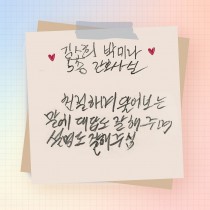 김소희 박미라
5층 간호사실
친절하며 물어보는
말에 대답도 잘해주며
설명도 잘해주심